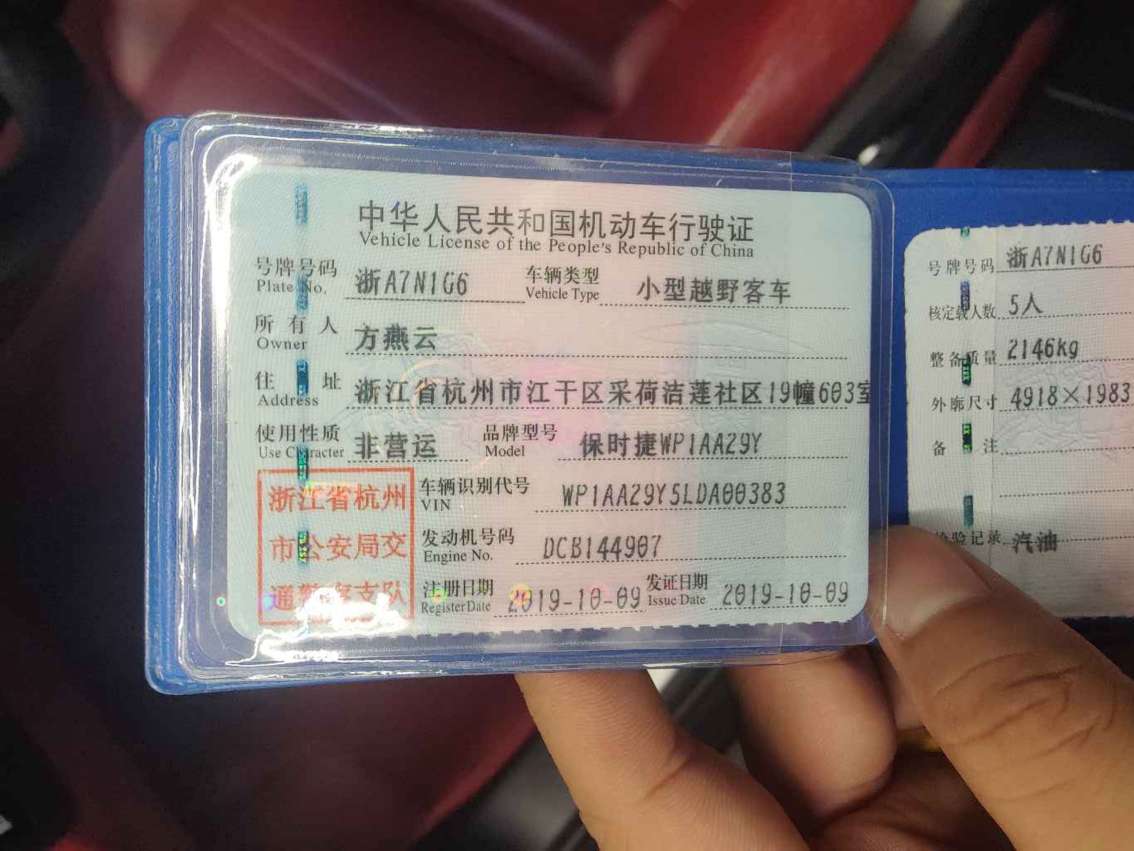 中华人民共和国机动车行驶证
Vehicle License of the People's Republic of China
号牌号码 浙A7N1G6 车辆类型 小型越野客车
Plate No. Vehicle Type
所有人 方燕云
Owner
住址 浙江省杭州市江干区采荷洁莲社区19幢603室
Address
使用性质 非营运 品牌型号 保时捷WP1AA29Y
Use Character Model
浙江省杭州
市公安局交
通警察支队
车辆识别代号 WP1AA29Y5LDA00383
VIN
发动机号码 DCB144907
Engine No.
注册日期 2019-10-09 发证日期 2019-10-09
Register Date Issue Date
号牌号码 浙A7N1G6
核定载人数 5人
整备质量 2146kg
外廓尺寸 4918×1983
备注
检验记录 汽油